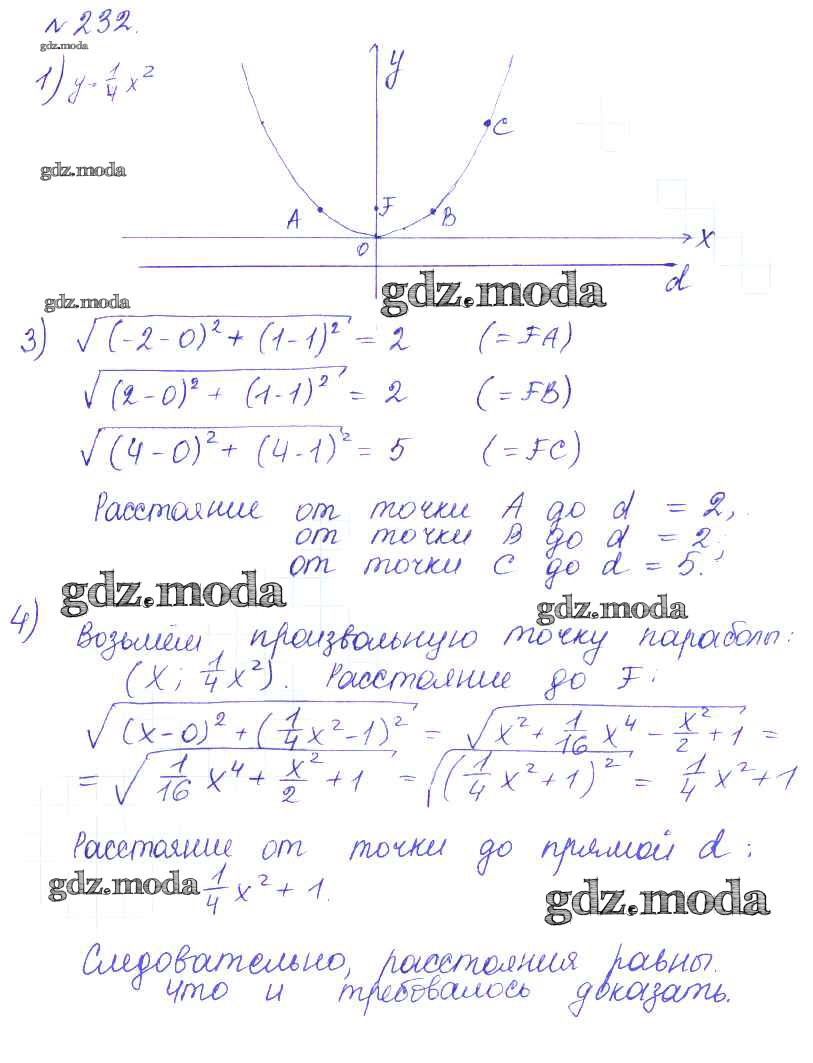 № 232.
gdz.moda
1) y = 1/4 x²
y
C
gdz.moda
A F B
O x
d
gdz.moda gdz.moda
3) √((-2-0)² + (1-1)²) = 2 (= FA)
√((2-0)² + (1-1)²) = 2 (= FB)
√((4-0)² + (4-1)²) = 5 (= FC)
Расстояние от точки A до d = 2,
от точки B до d = 2,
от точки C до d = 5.
gdz.moda gdz.moda
4) Возьмём произвольную точку параболы:
(x; 1/4 x²). Расстояние до F:
√((x-0)² + (1/4 x² - 1)²) = √(x² + 1/16 x⁴ - x²/2 + 1) =
= √(1/16 x⁴ + x²/2 + 1) = √((1/4 x² + 1)²) = 1/4 x² + 1
Расстояние от точки до прямой d:
gdz.moda 1/4 x² + 1. gdz.moda
Следовательно, расстояния равны.
что и требовалось доказать.